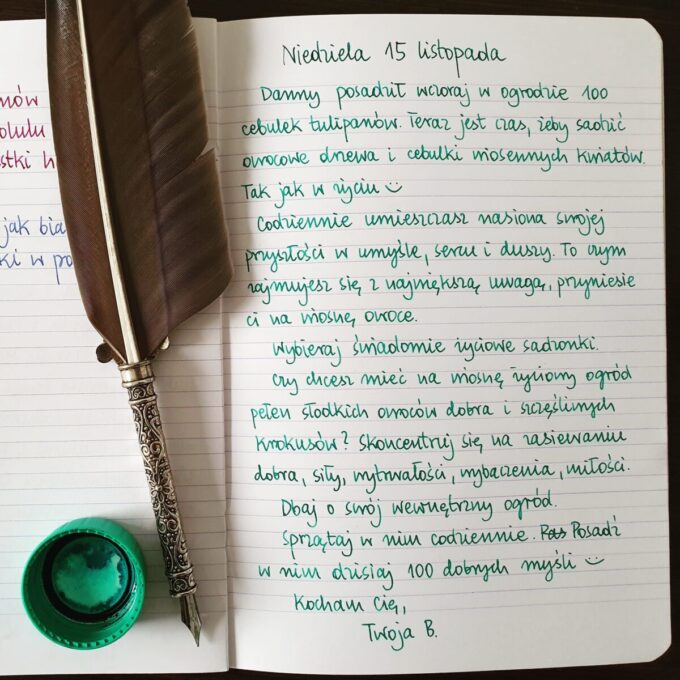 mów
olulu
stki h
jak bia
ki w po
Niedziela 15 listopada
Danny posadził wczoraj w ogrodzie 100
cebulek tulipanów. Teraz jest czas, żeby sadzić
owocowe drzewa i cebulki wiosennych kwiatów.
Tak jak w życiu
Codziennie umieszczasz nasiona swojej
przyszłości w umyśle, sercu i duszy. To czym
zajmujesz się z największą uwagą, przyniesie
ci na wiosnę owoce.
Wybieraj świadomie życiowe sadzonki.
Czy chcesz mieć na wiosnę życiowy ogród
pełen słodkich owoców dobra i szczęśliwych
krokusów? Skoncentruj się na zasiewaniu
dobra, siły, wytrwałości, wybaczenia, miłości.
Dbaj o swój wewnętrzny ogród.
Sprzątaj w nim codziennie. Posadź
w nim dzisiaj 100 dobrych myśli
Kocham Cię,
Twoja B.